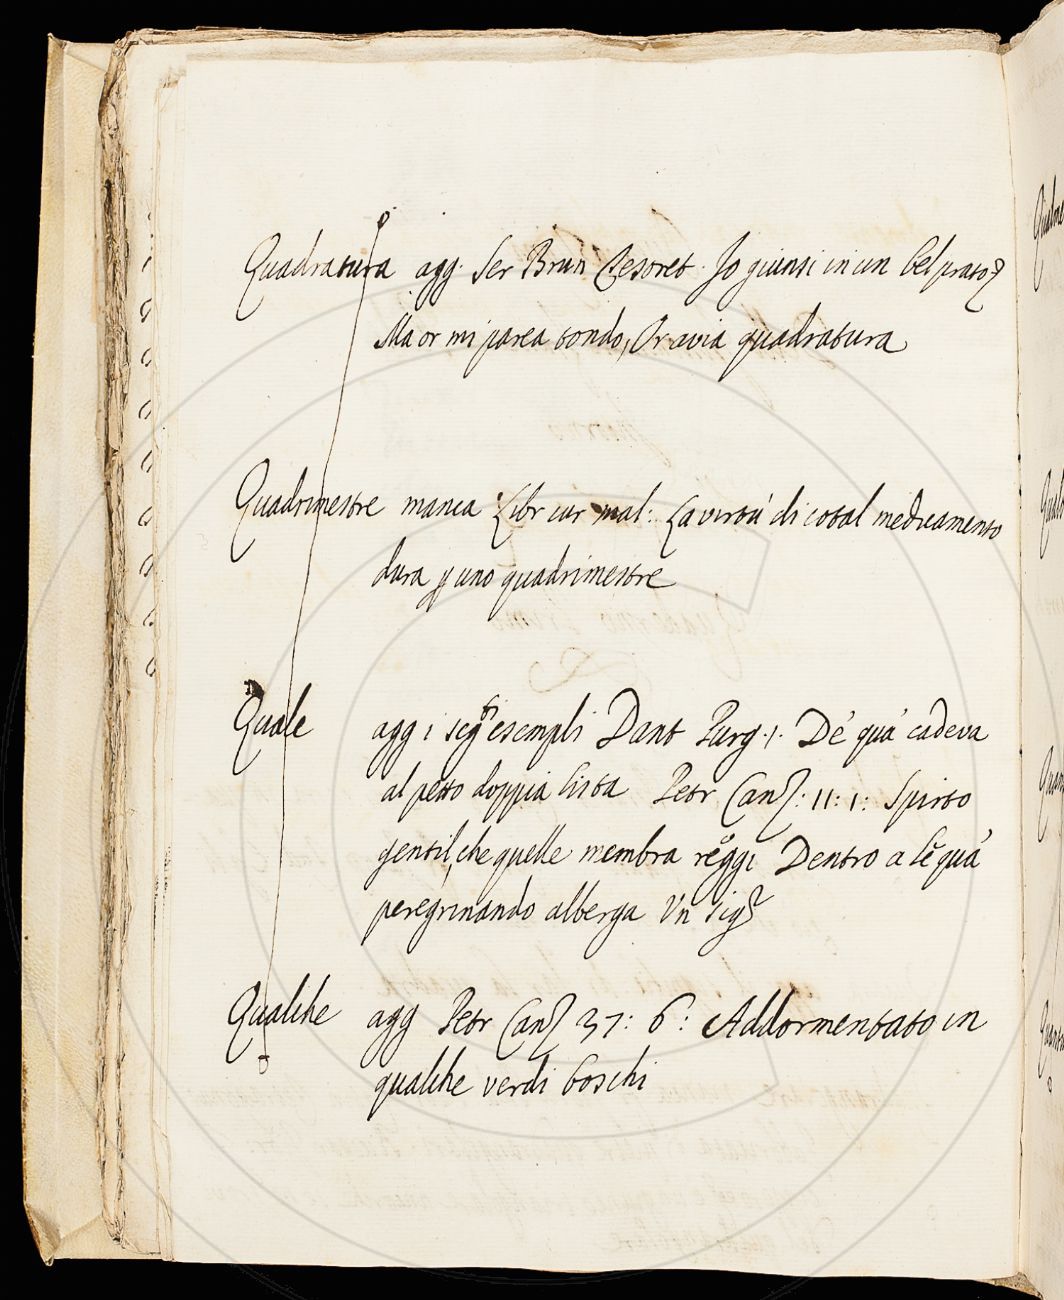 Quadratura agg. Ser Brun Tesoret. Io giunsi in un bel prato
Ma or mi parea tondo, Or avia quadratura
Quadrimestre manca Libr cur mal: La virtú di cotal medicamento
dura p uno quadrimestre
Quale agg i seg.ti esempli Dant Purg. 1. De' qua' cadeva
al petto doppia lista Petr Canz: 11: 1: Spirto
gentil, che quelle membra reggi Dentro a le qua'
peregrinando alberga Un sig.r
Qualche agg Petr Canz 37: 6: Addormentato in
qualche verdi boschi